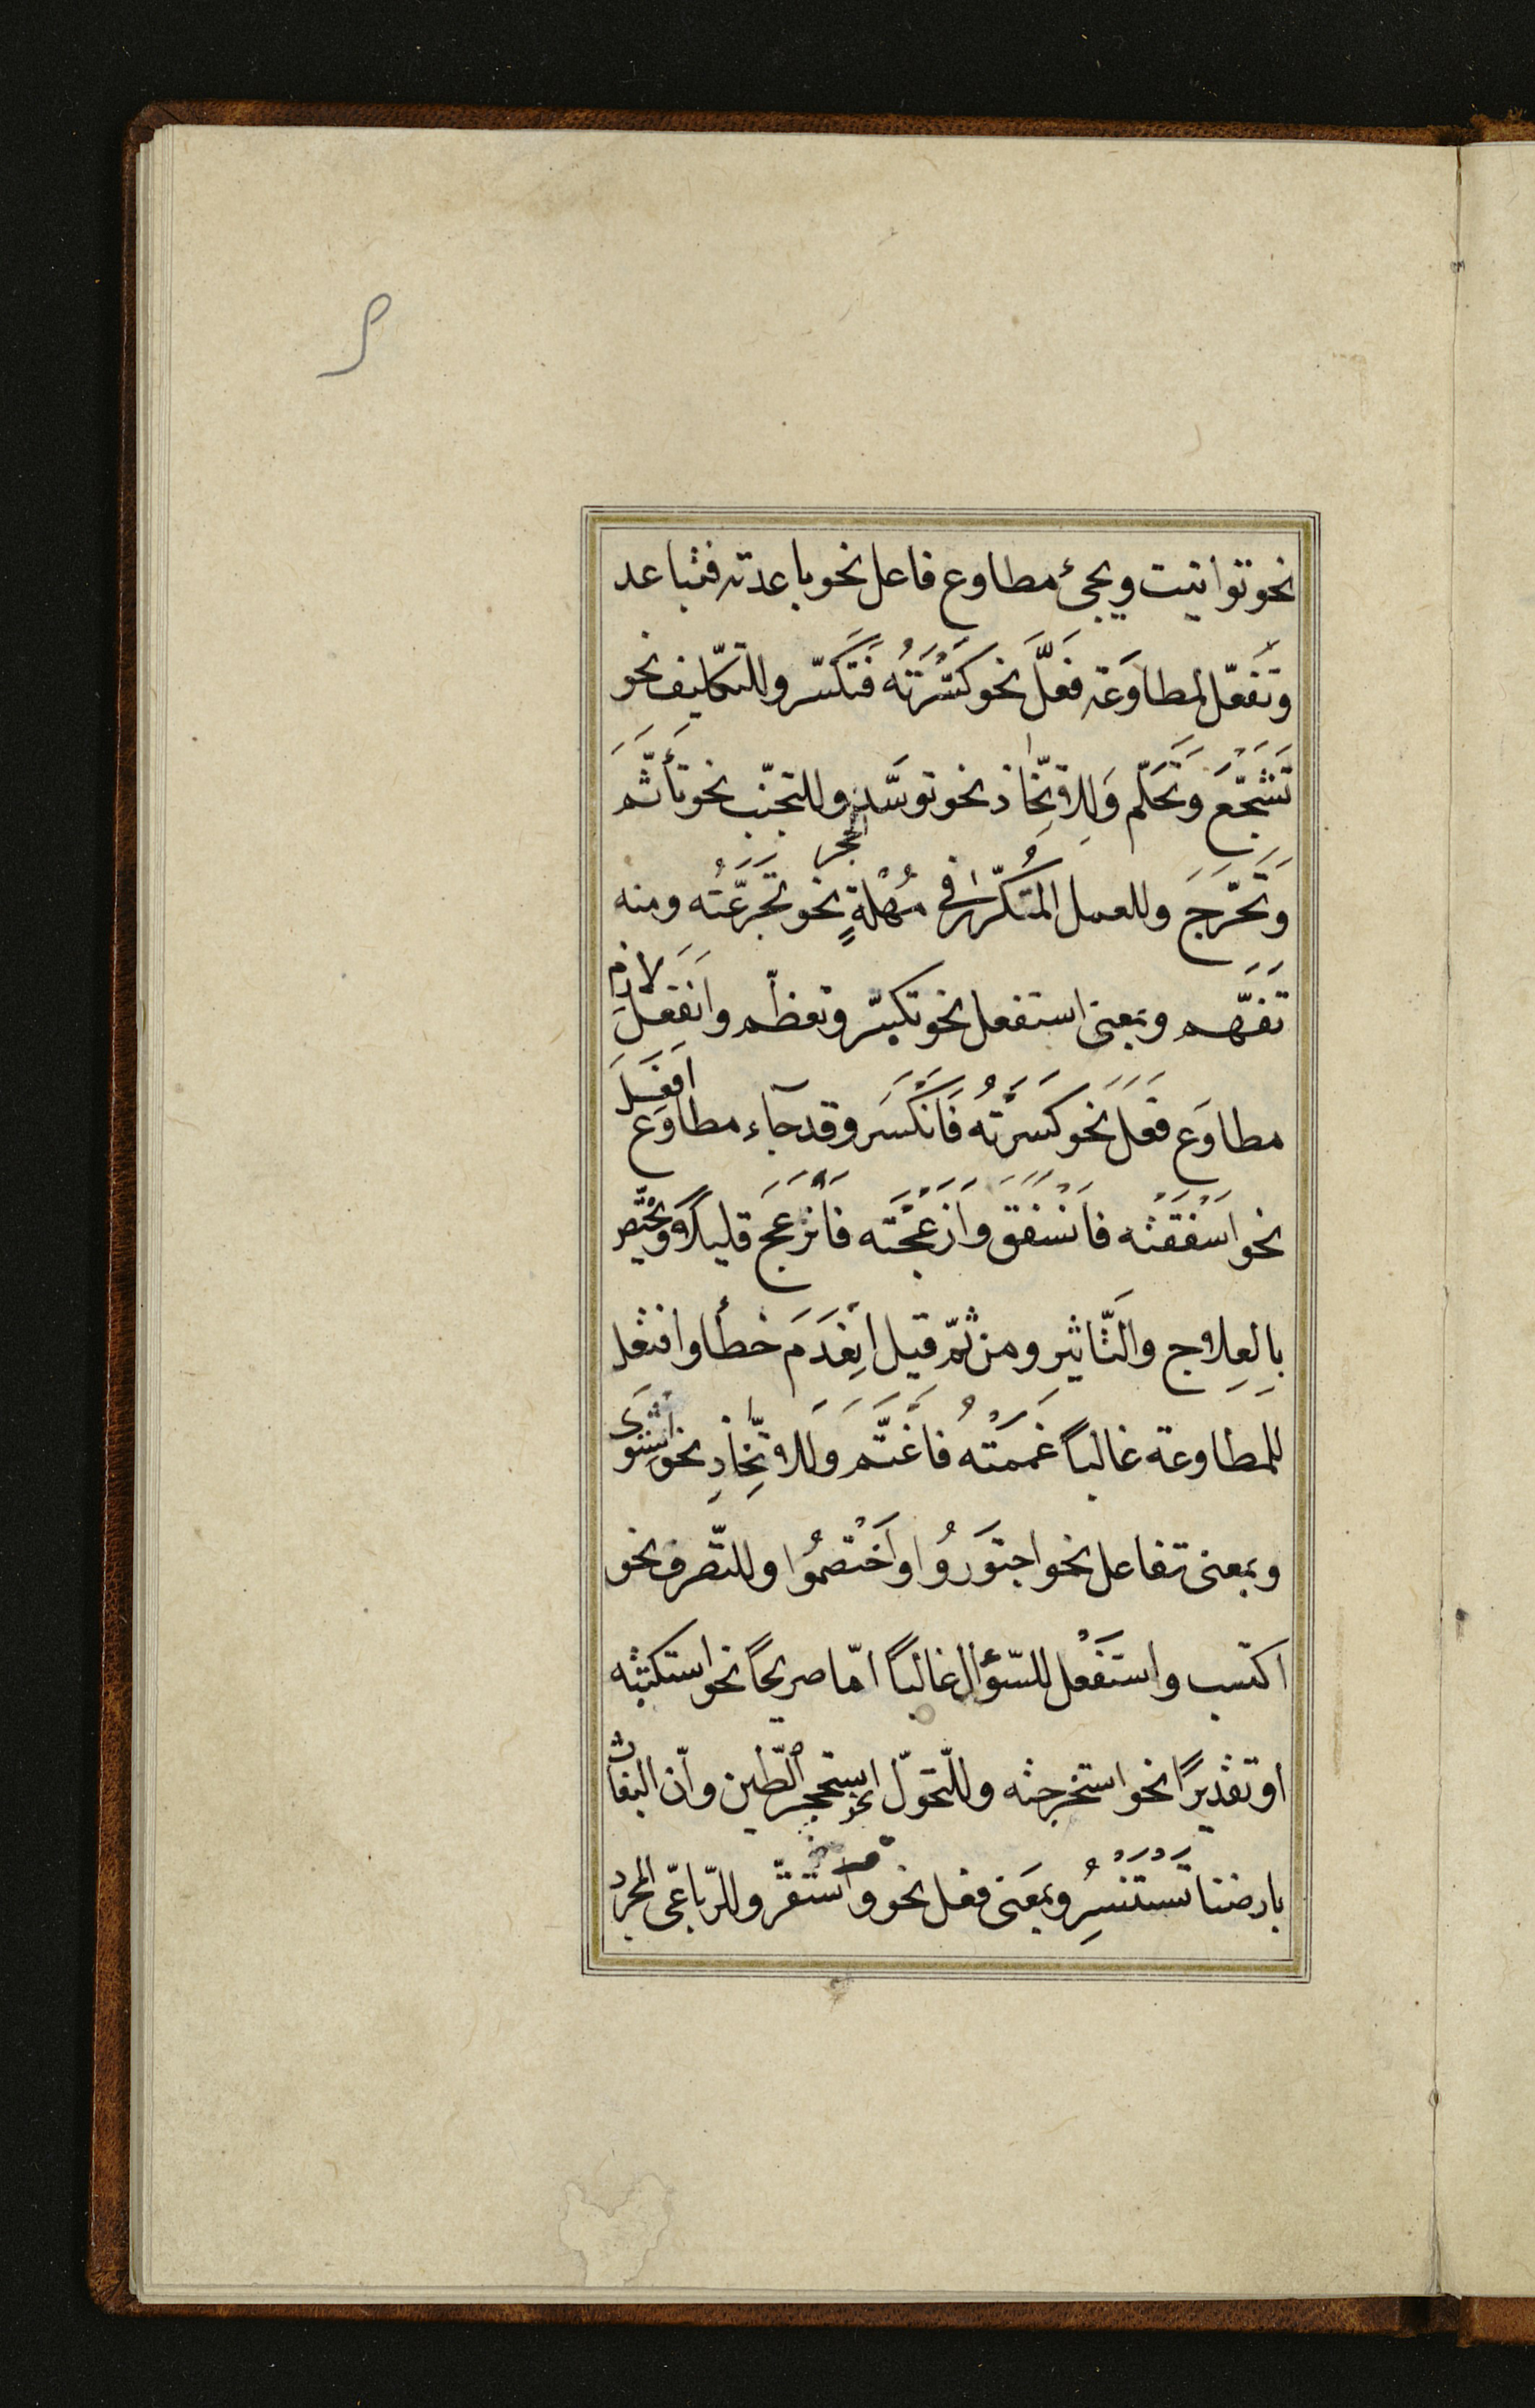 نحو توانيت ويجئ مطاوع فاعل نحو باعدته فتباعد
وتَفَعّل لمطاوَعة فَعَلَّ نحو كَسَّرْتُه فَتَكَسّر وللتكليف نحو
تَشَجّعَ وَتَحَلّم وَلِلاتِّخاذ نحو توسَّد الحجر وللتجنّب نحو تَأَثّمَ
وَتَحَرّجَ وللعمل المتُكرّر فى مُهْلةٍ نحو تَجَرَّعْتُه ومنه
تَفَهَّم وبمعنى استفعل نحو تكبّر وتعظّم وانفَعَلَ لازم
مطاوَع فَعَلَ نحو كَسَرْتُه فَانْكَسَر وقد جآء مطاوَع افعَلَ
نحو اَسْفَقْتُه فَانْسَفَق وَاَزْعَجْتَه فَانْزَعَجَ قليلاً وَيَختَصّ
بِالعِلاج والتَّاثيرِ ومن ثمّ قيل اِنْعَدَمَ خطأ وافتعل
للمطاوعة غالباً غَمَمْتُه فَاغْتَّم وَللاتِّخاذِ نحو اِشْتَوَى
وبمعنى تفاعل نحو اجتوَرُوا واَخْتصمُوا وللتّصرف نحو
اكتسب واستَفْعل للسّؤال غالباً امّا صريحاً نحو استكتبته
او تقديرًا نحو استخرجته وللتّحوّل نحو اِستحجر الطّين وانّ البغاث
بارضنا تَسْتَنْسِرُ وبمعَنى فعل نحو قر واستقرّ وللرّباعّى المجرد